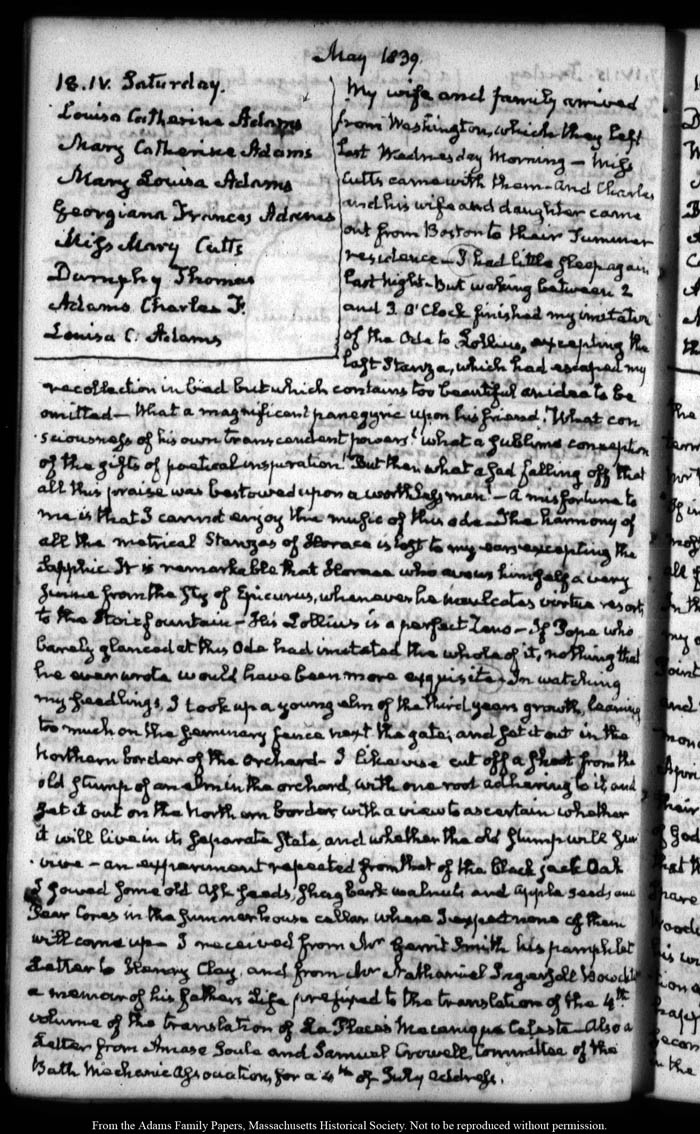 May 1839.
18. IV. Saturday.
Louisa Catherine Adams
Mary Catherine Adams
Mary Louisa Adams
Georgiana Frances Adams
Miss Mary Cutts
Dumphy Thomas
Adams Charles F.
Louisa C. Adams
My wife and family arrived
from Washington, which they left
last Wednesday Morning — Miss
Cutts came with them — and Charles
and his wife and daughter came
out from Boston to their Summer
residence — I had little sleep again
last night — But waking between 2
and 3 O'Clock finished my imitation
of the Ode to Lollius, excepting the
last Stanza, which had escaped my
recollection in bed but which contains too beautiful an idea to be
omitted — What a magnificent panegyric upon his friend! What con
sciousness of his own transcendent powers! what a sublime conception
of the gifts of poetical inspiration! But then what a sad falling off that
all this praise was bestowed upon a worthless man! — A misfortune to
me is that I cannot enjoy the music of this ode — The harmony of
all the metrical Stanzas of Horace is lost to my ears excepting the
Sapphic. It is remarkable that Horace who avows himself a very
swine from the sty of Epicurus, whenever he inculcates virtue resorts
to the Stoic fountain — His Lollius is a perfect Zeno — If Pope who
barely glanced at this Ode had imitated the whole of it, nothing that
he ever wrote would have been more exquisite. In watching
my seedlings, I took up a young elm of the third years growth, leaning
too much on the Seminary fence next the gate; and set it out in the
Northern border of the orchard — I likewise cut off a shoot from the
old stump of an elm in the orchard, with one root adhering to it, and
set it out on the Northern border, with a view to ascertain whether
it will live in its separate State, and whether the old stump will sur
vive — an experiment repeated from that of the black jack Oak
I sowed some old Ash seeds, shagbark walnuts and apple seeds and
Pear Cores in the summerhouse cellar where I expect none of them
will come up — I received from Mr Gerrit Smith his pamphlet
Letter to Henry Clay, and from Mr Nathaniel Ingersoll Bowditch
a memoir of his father's Life prefixed to the translation of the 4th
volume of the translation of La Place's Mecanique Celeste — Also a
Letter from Amase Soule and Samuel Crowell, Committee of the
Bath Mechanic Association, for a 4th of July address.
From the Adams Family Papers, Massachusetts Historical Society. Not to be reproduced without permission.